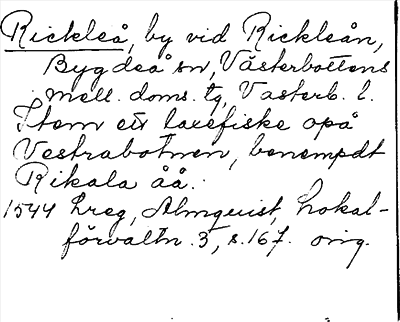 Rickleå, by vid Rickleån,
Bygdeå sn, Västerbottens
mell. doms. tg, Västerb. l.
Item ett laxefiske opå
Vestrabotnen, benempdt
Rikala åå.
1544 Lreg, Almquist, Lokal-
förvaltn. 3, s. 167. orig.